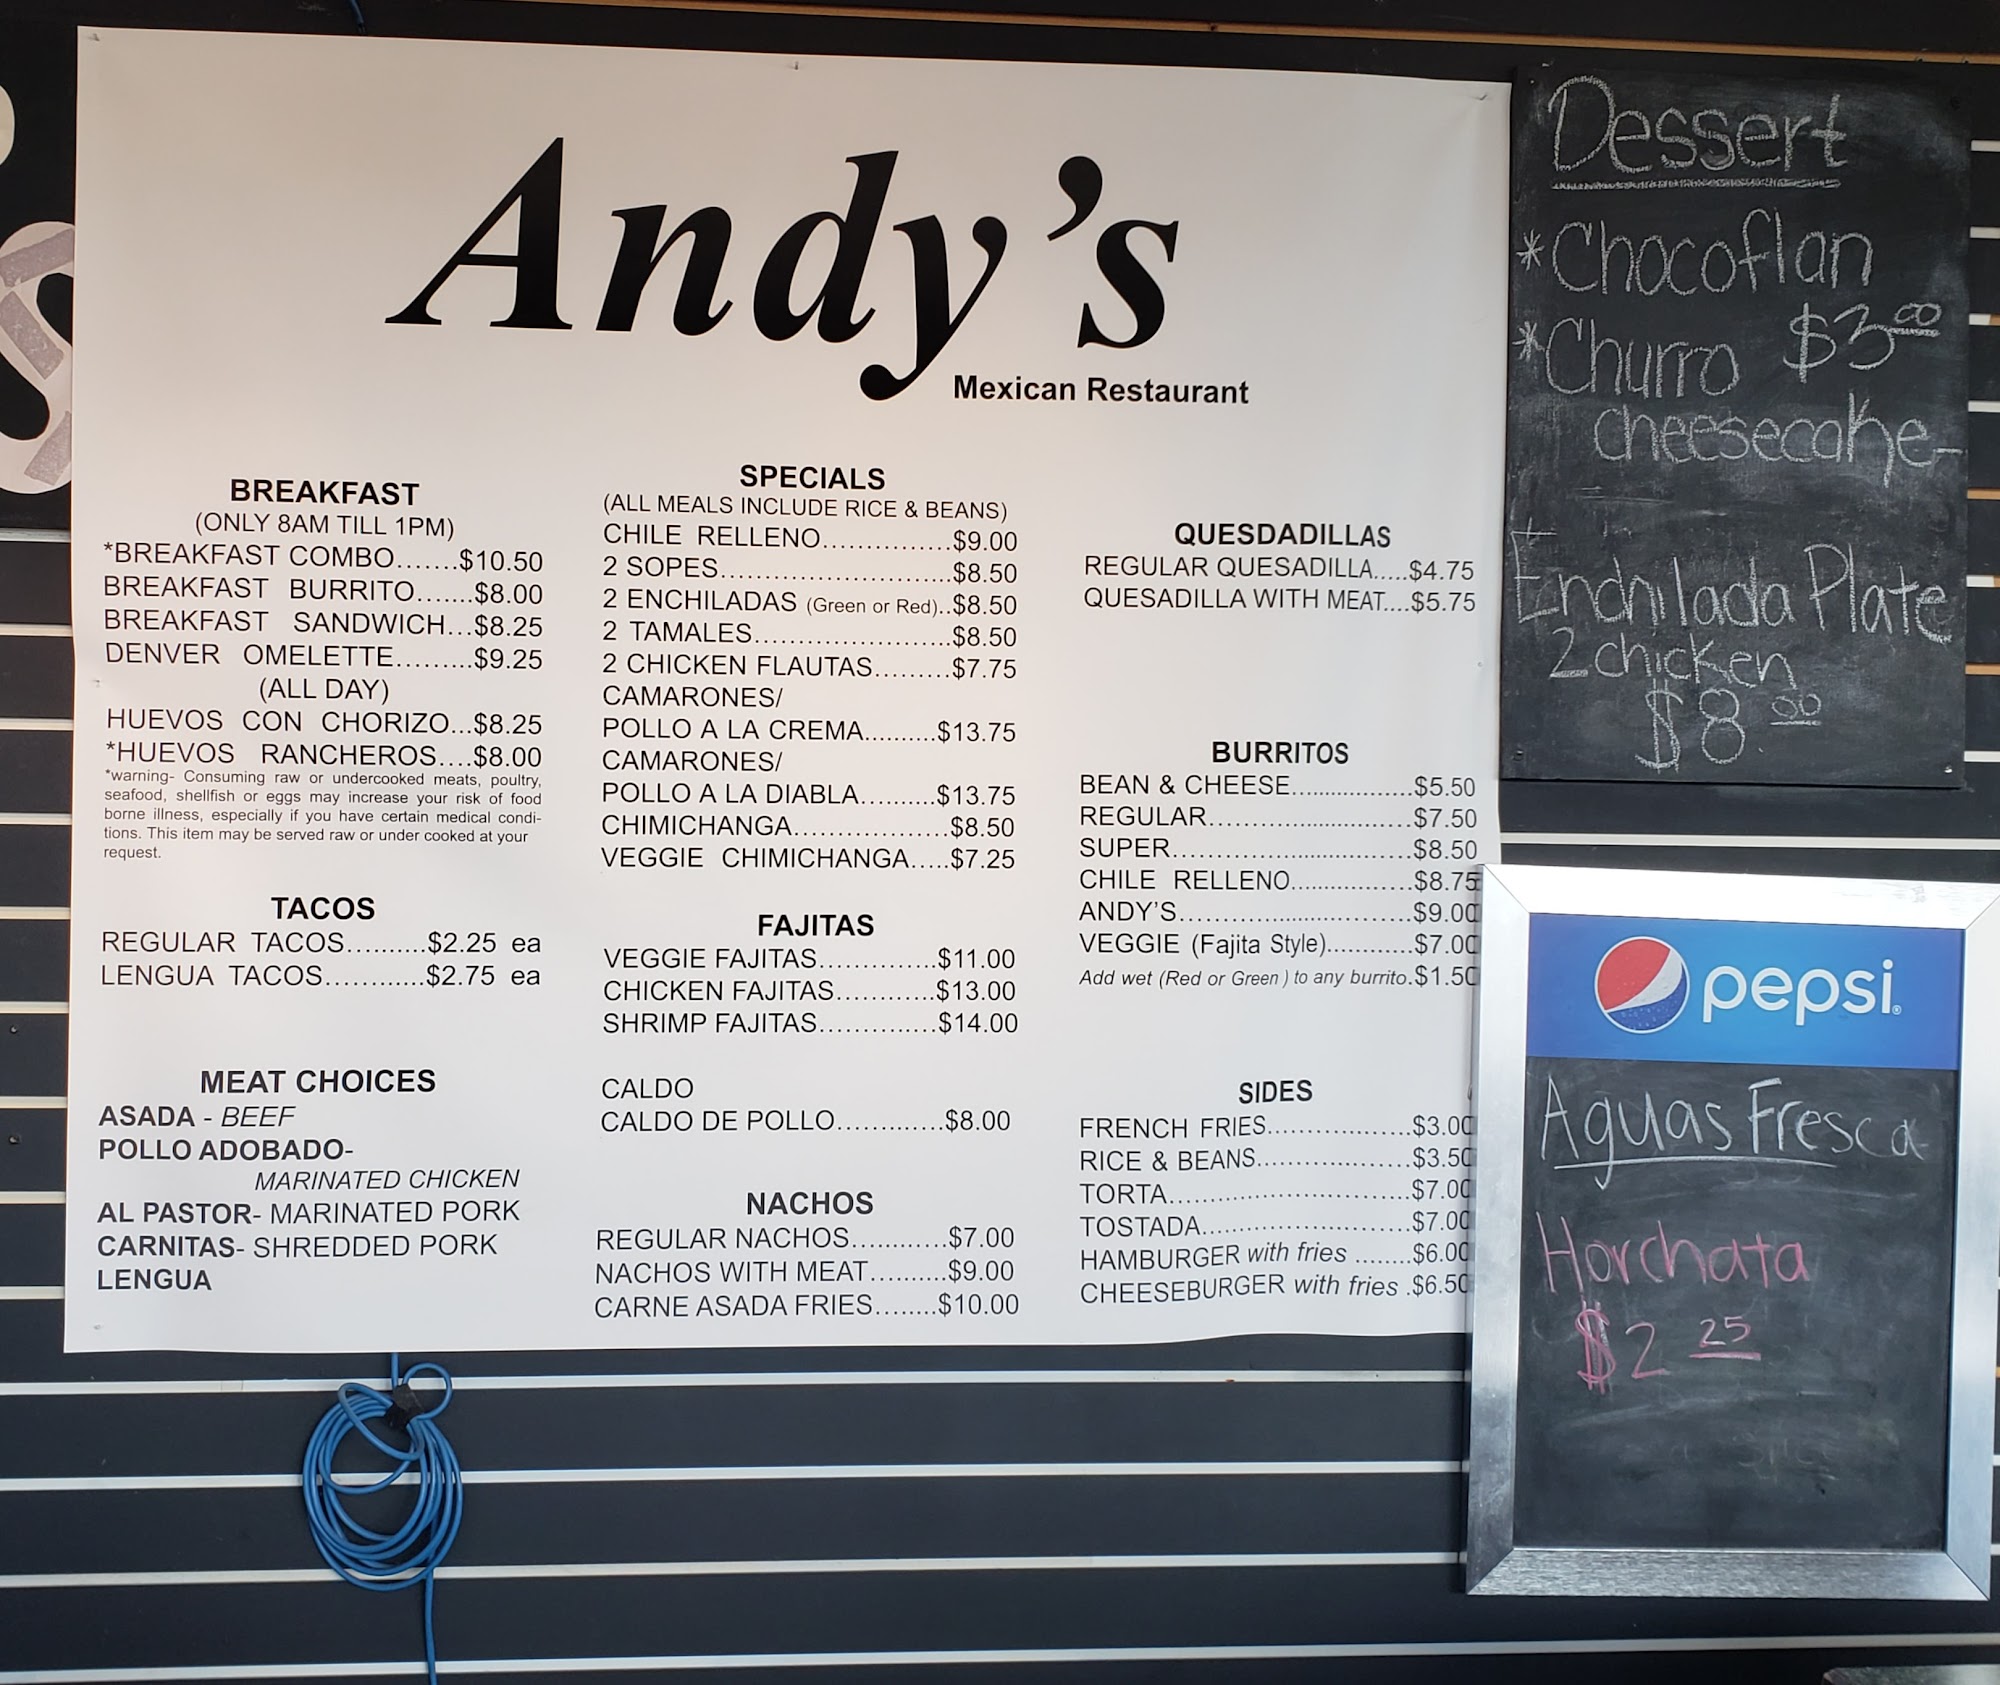 Andy's
Mexican Restaurant
BREAKFAST
(ONLY 8AM TILL 1PM)
*BREAKFAST COMBO.......$10.50
BREAKFAST BURRITO.......$8.00
BREAKFAST SANDWICH...$8.25
DENVER OMELETTE.........$9.25
(ALL DAY)
HUEVOS CON CHORIZO...$8.25
*HUEVOS RANCHEROS....$8.00
*warning- Consuming raw or undercooked meats, poultry,
seafood, shellfish or eggs may increase your risk of food
borne illness, especially if you have certain medical condi-
tions. This item may be served raw or under cooked at your
request.
TACOS
REGULAR TACOS..........$2.25 ea
LENGUA TACOS............$2.75 ea
MEAT CHOICES
ASADA - BEEF
POLLO ADOBADO-
MARINATED CHICKEN
AL PASTOR- MARINATED PORK
CARNITAS- SHREDDED PORK
LENGUA
SPECIALS
(ALL MEALS INCLUDE RICE & BEANS)
CHILE RELLENO...............$9.00
2 SOPES...........................$8.50
2 ENCHILADAS (Green or Red)..$8.50
2 TAMALES.......................$8.50
2 CHICKEN FLAUTAS.........$7.75
CAMARONES/
POLLO A LA CREMA..........$13.75
CAMARONES/
POLLO A LA DIABLA..........$13.75
CHIMICHANGA..................$8.50
VEGGIE CHIMICHANGA.....$7.25
FAJITAS
VEGGIE FAJITAS..............$11.00
CHICKEN FAJITAS............$13.00
SHRIMP FAJITAS..............$14.00
CALDO
CALDO DE POLLO.............$8.00
NACHOS
REGULAR NACHOS...........$7.00
NACHOS WITH MEAT..........$9.00
CARNE ASADA FRIES........$10.00
QUESDADILLAS
REGULAR QUESADILLA.....$4.75
QUESADILLA WITH MEAT....$5.75
BURRITOS
BEAN & CHEESE.................$5.50
REGULAR..........................$7.50
SUPER..............................$8.50
CHILE RELLENO.................$8.75
ANDY'S..............................$9.00
VEGGIE (Fajita Style)............$7.00
Add wet (Red or Green ) to any burrito.$1.50
SIDES
FRENCH FRIES...................$3.00
RICE & BEANS....................$3.50
TORTA...............................$7.00
TOSTADA...........................$7.00
HAMBURGER with fries ........$6.00
CHEESEBURGER with fries .$6.50
Dessert
*Chocoflan
$3.00
*Churro
cheesecake
Enchilada Plate
2 chicken
$8.00
pepsi
Aguas Fresca
Horchata
$2 25